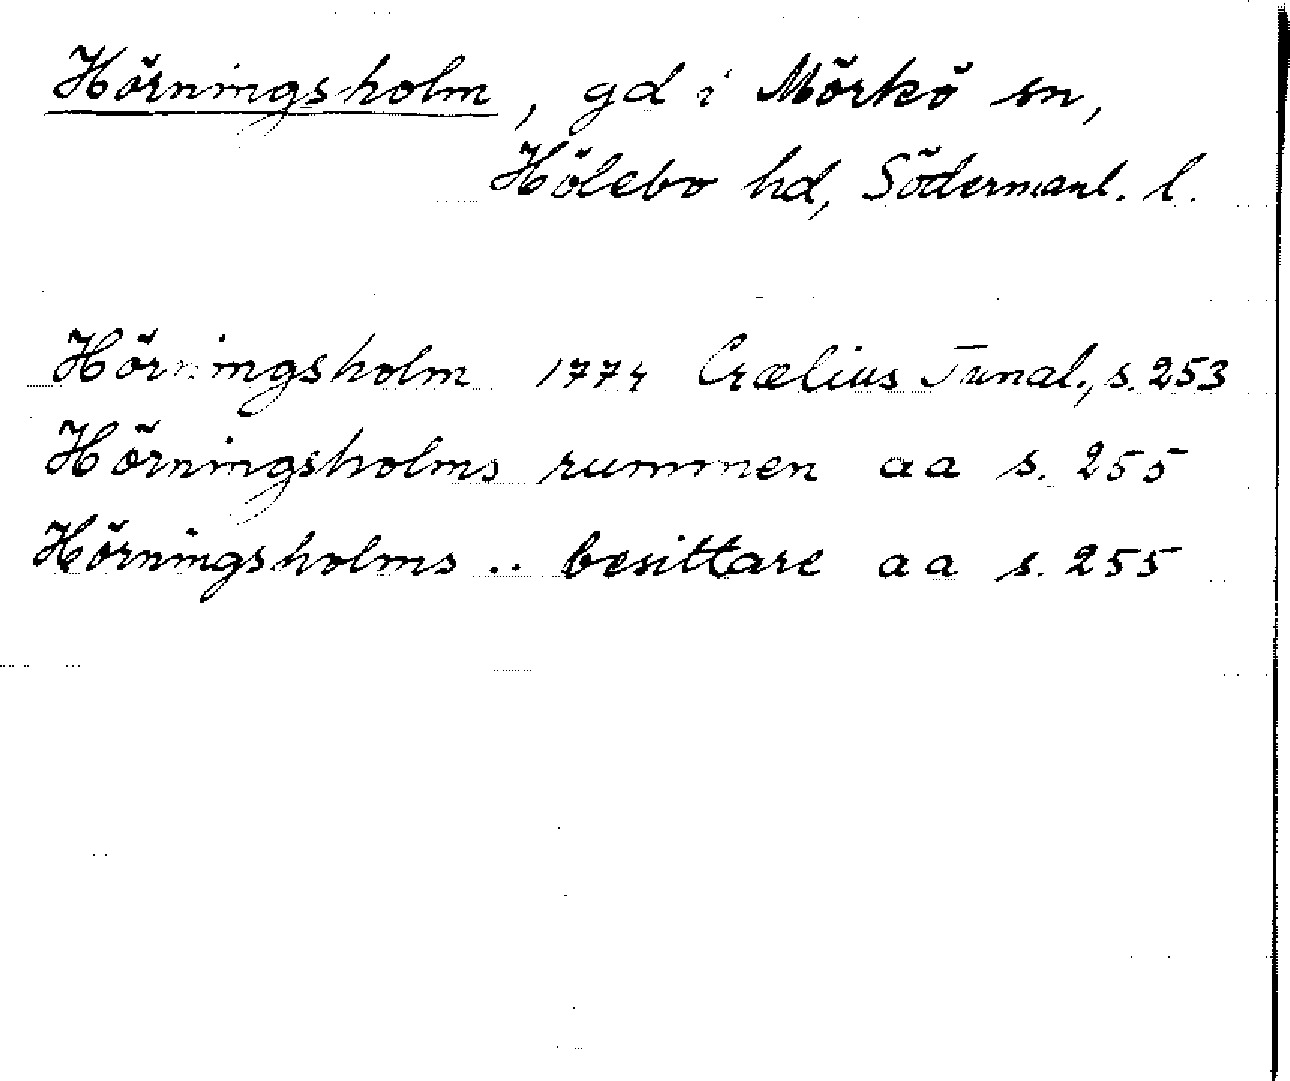 Hörningsholm, gd i Mörkö sn,
Hölebo hd, Södermanl. l.
Hörningsholm 1774 Crælius Tunal., s. 253
Hörningsholms rummen aa s. 255
Hörningsholms .. besittare aa s. 255